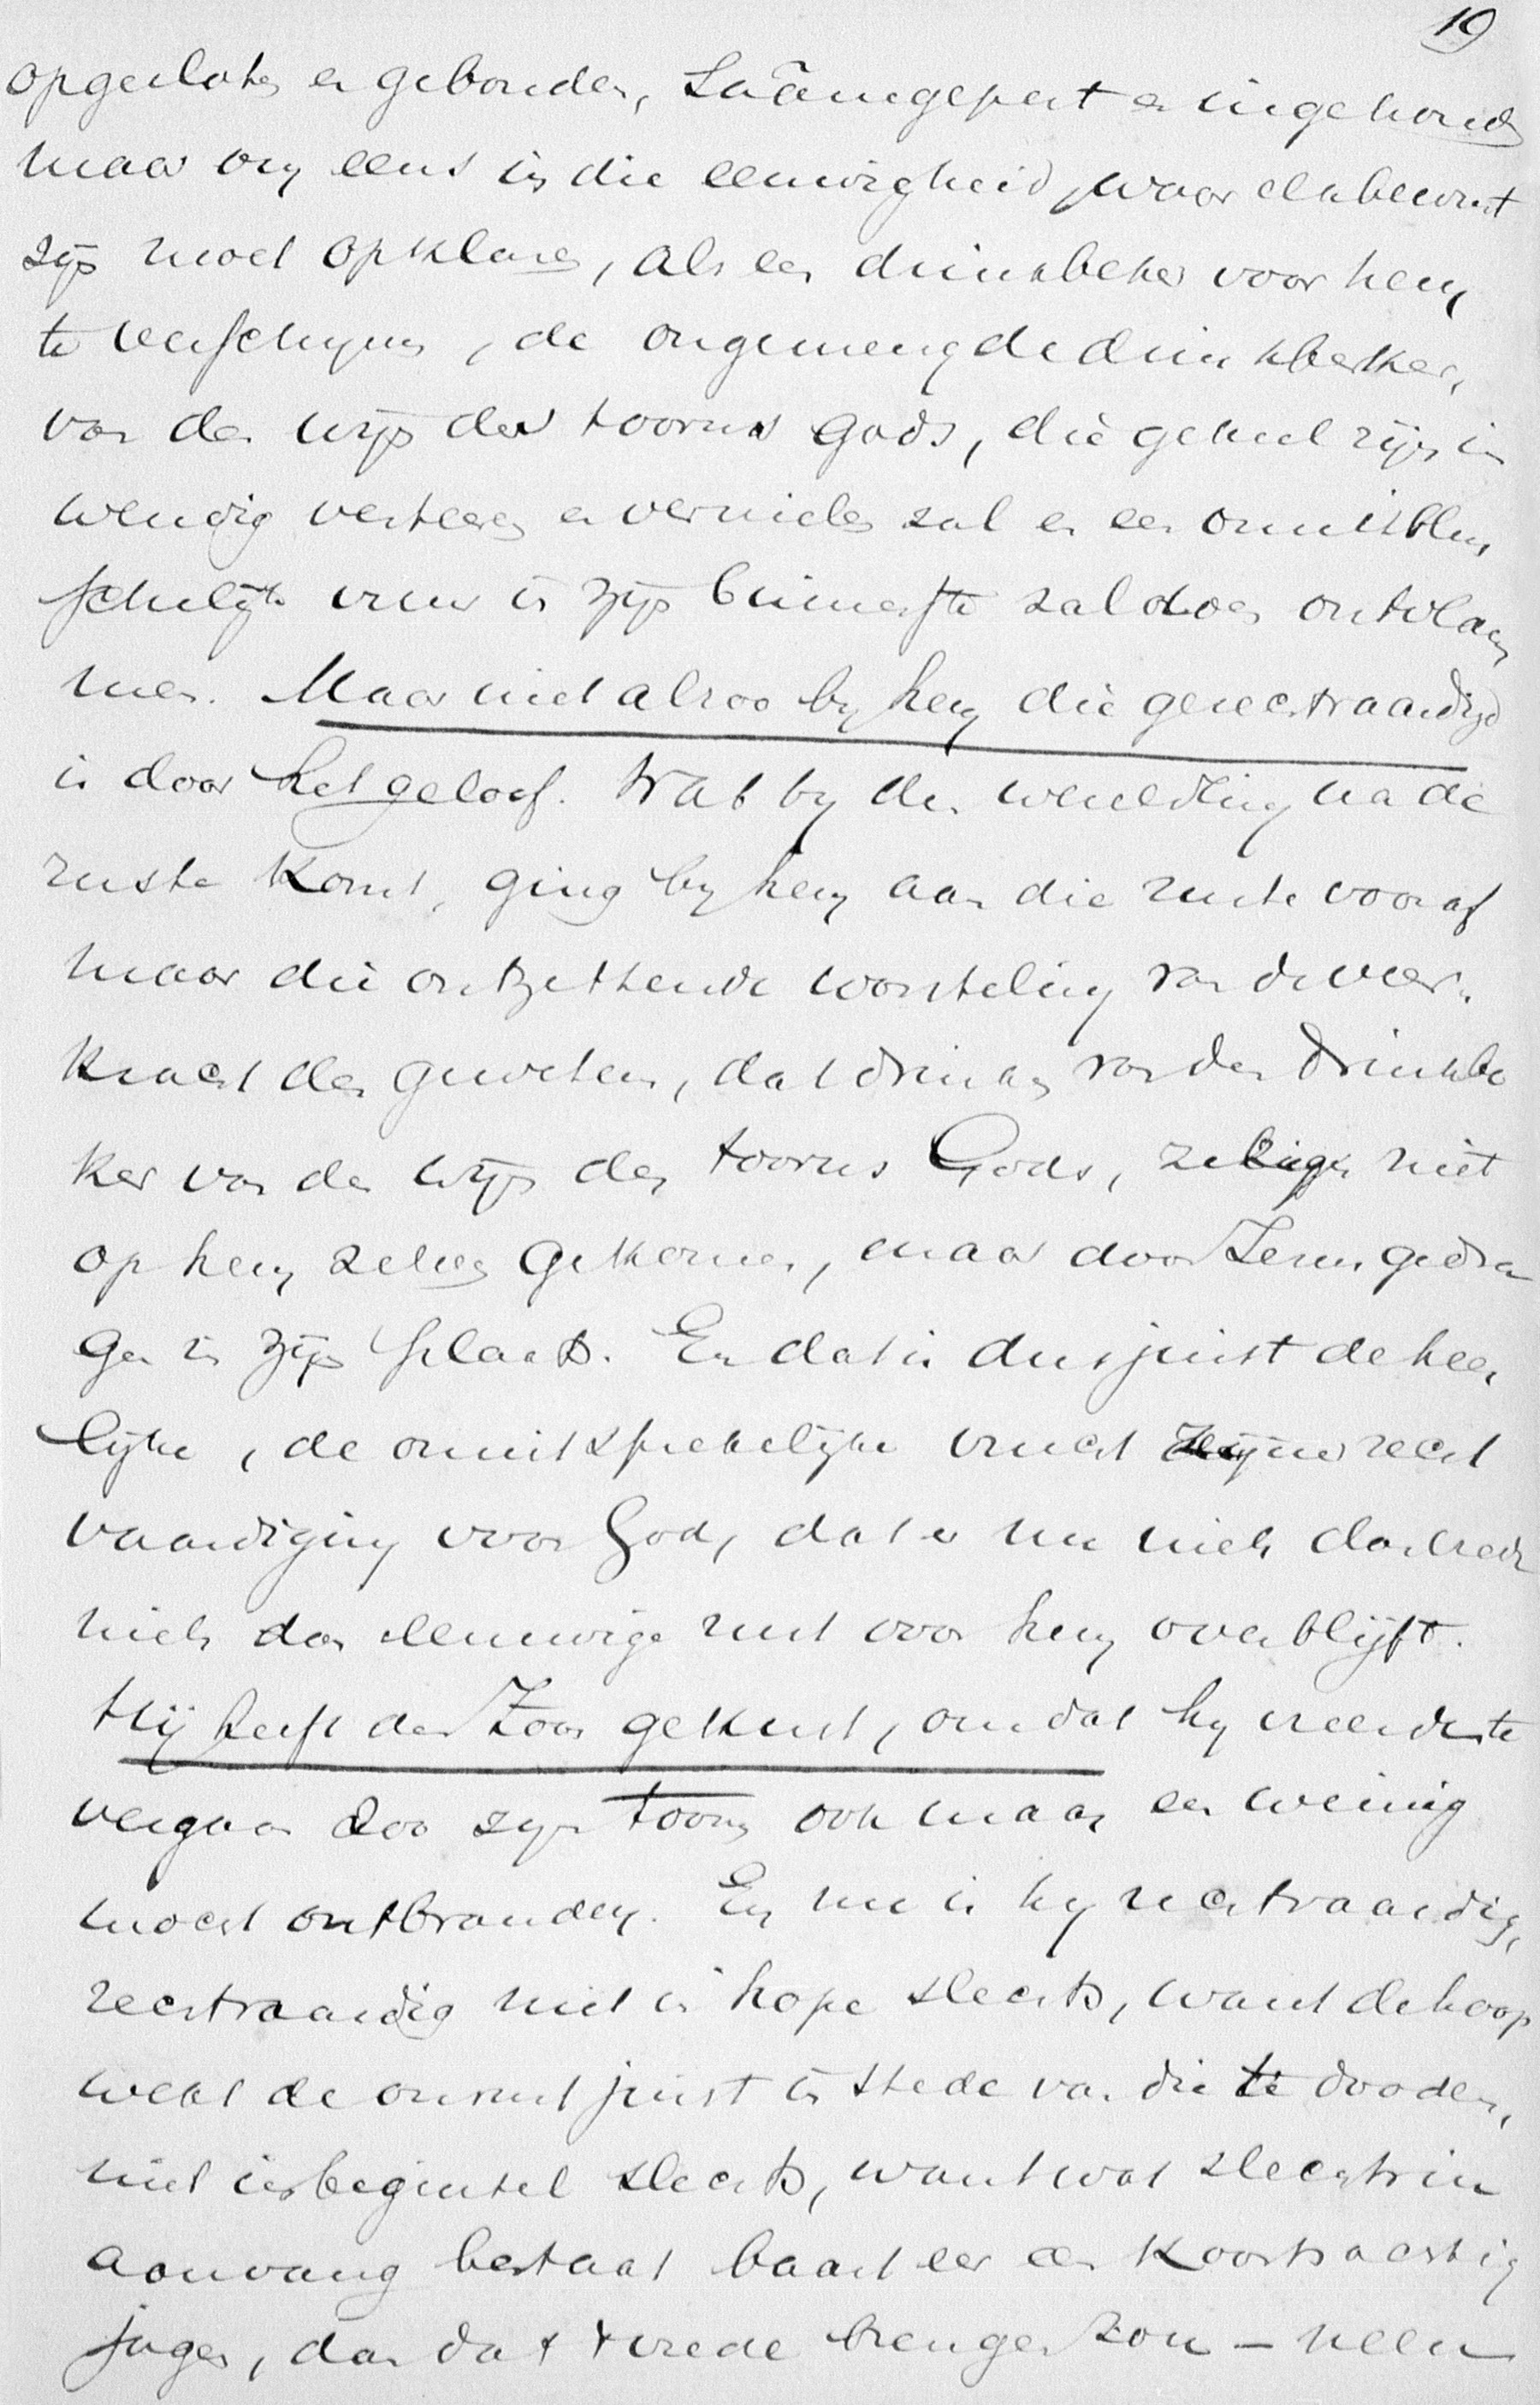 19
opgesloten en gebonden, saâmgeperst en ingehouden
maar om eens in die eeuwigheid, waar elks bewust
zijn moet opklaren, als een drinkbeker voor hem
te verschijnen, de ongemengde drinkbeker,
van den wijn des toorns Gods, die geheel zijn in
wendig verteren en vernielen zal en een onuitblus
schelijk vuur in zijn binnenste zal doen ontvlam
men. Maar niet alzoo by hem die gerechtvaardigd
is door het geloof. Wat by den wereldling na die
ruste komt, ging by hem aan die ruste vooraf
maar die ontzettende worsteling van de veer-
kracht des gewetens, dat drinken van den drinkbe
ker van den wijn des toorns Gods, is niet
op hem zelven gekomen, maar door Jezus gedra
gen in zijn plaats. En dat is dus juist de heer
lijke, de onuitsprekelijke vrucht zijner recht
vaardiging voor God, dat er nu niets dan vrede
niets dan eeuwige rust voor hem overblijft.
Hij heeft den Zoon gekust, omdat hy vreesde te
vergaan zoo zyn toorn ook maar een weinig
moest ontbranden. En nu is hy rechtvaardig,
rechtvaardig niet in hope slechts, want de hoop
wekt de onrust juist in stede van die te dooden,
niet in beginsel slechts, want wat slechts in
aanvang bestaat baart eer een koortsachtig
jagen, dan dat t vrede brengen zou – neen